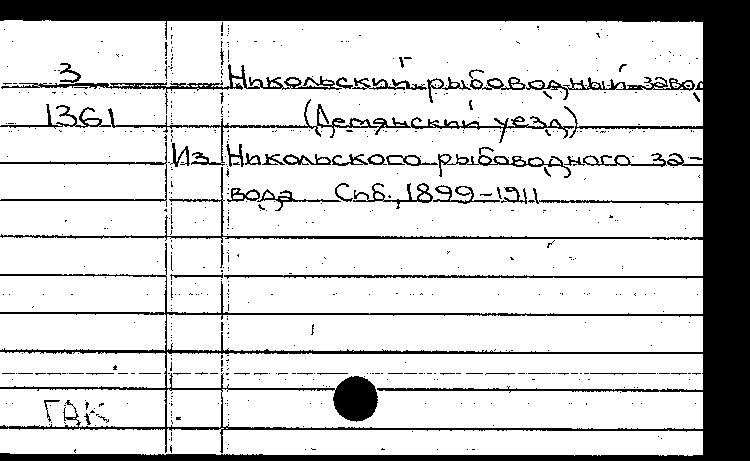 З Никольский рыбоводный завод
1361 (Демянский уезд)
Из Никольского рыбоводного за-
вода Спб., 1899-1911
ГВК